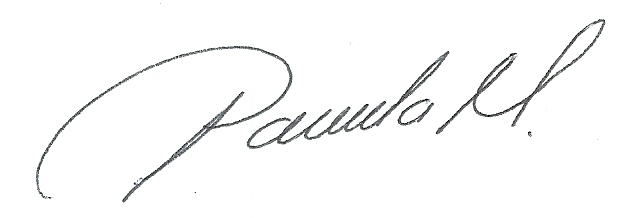 Pamela M.